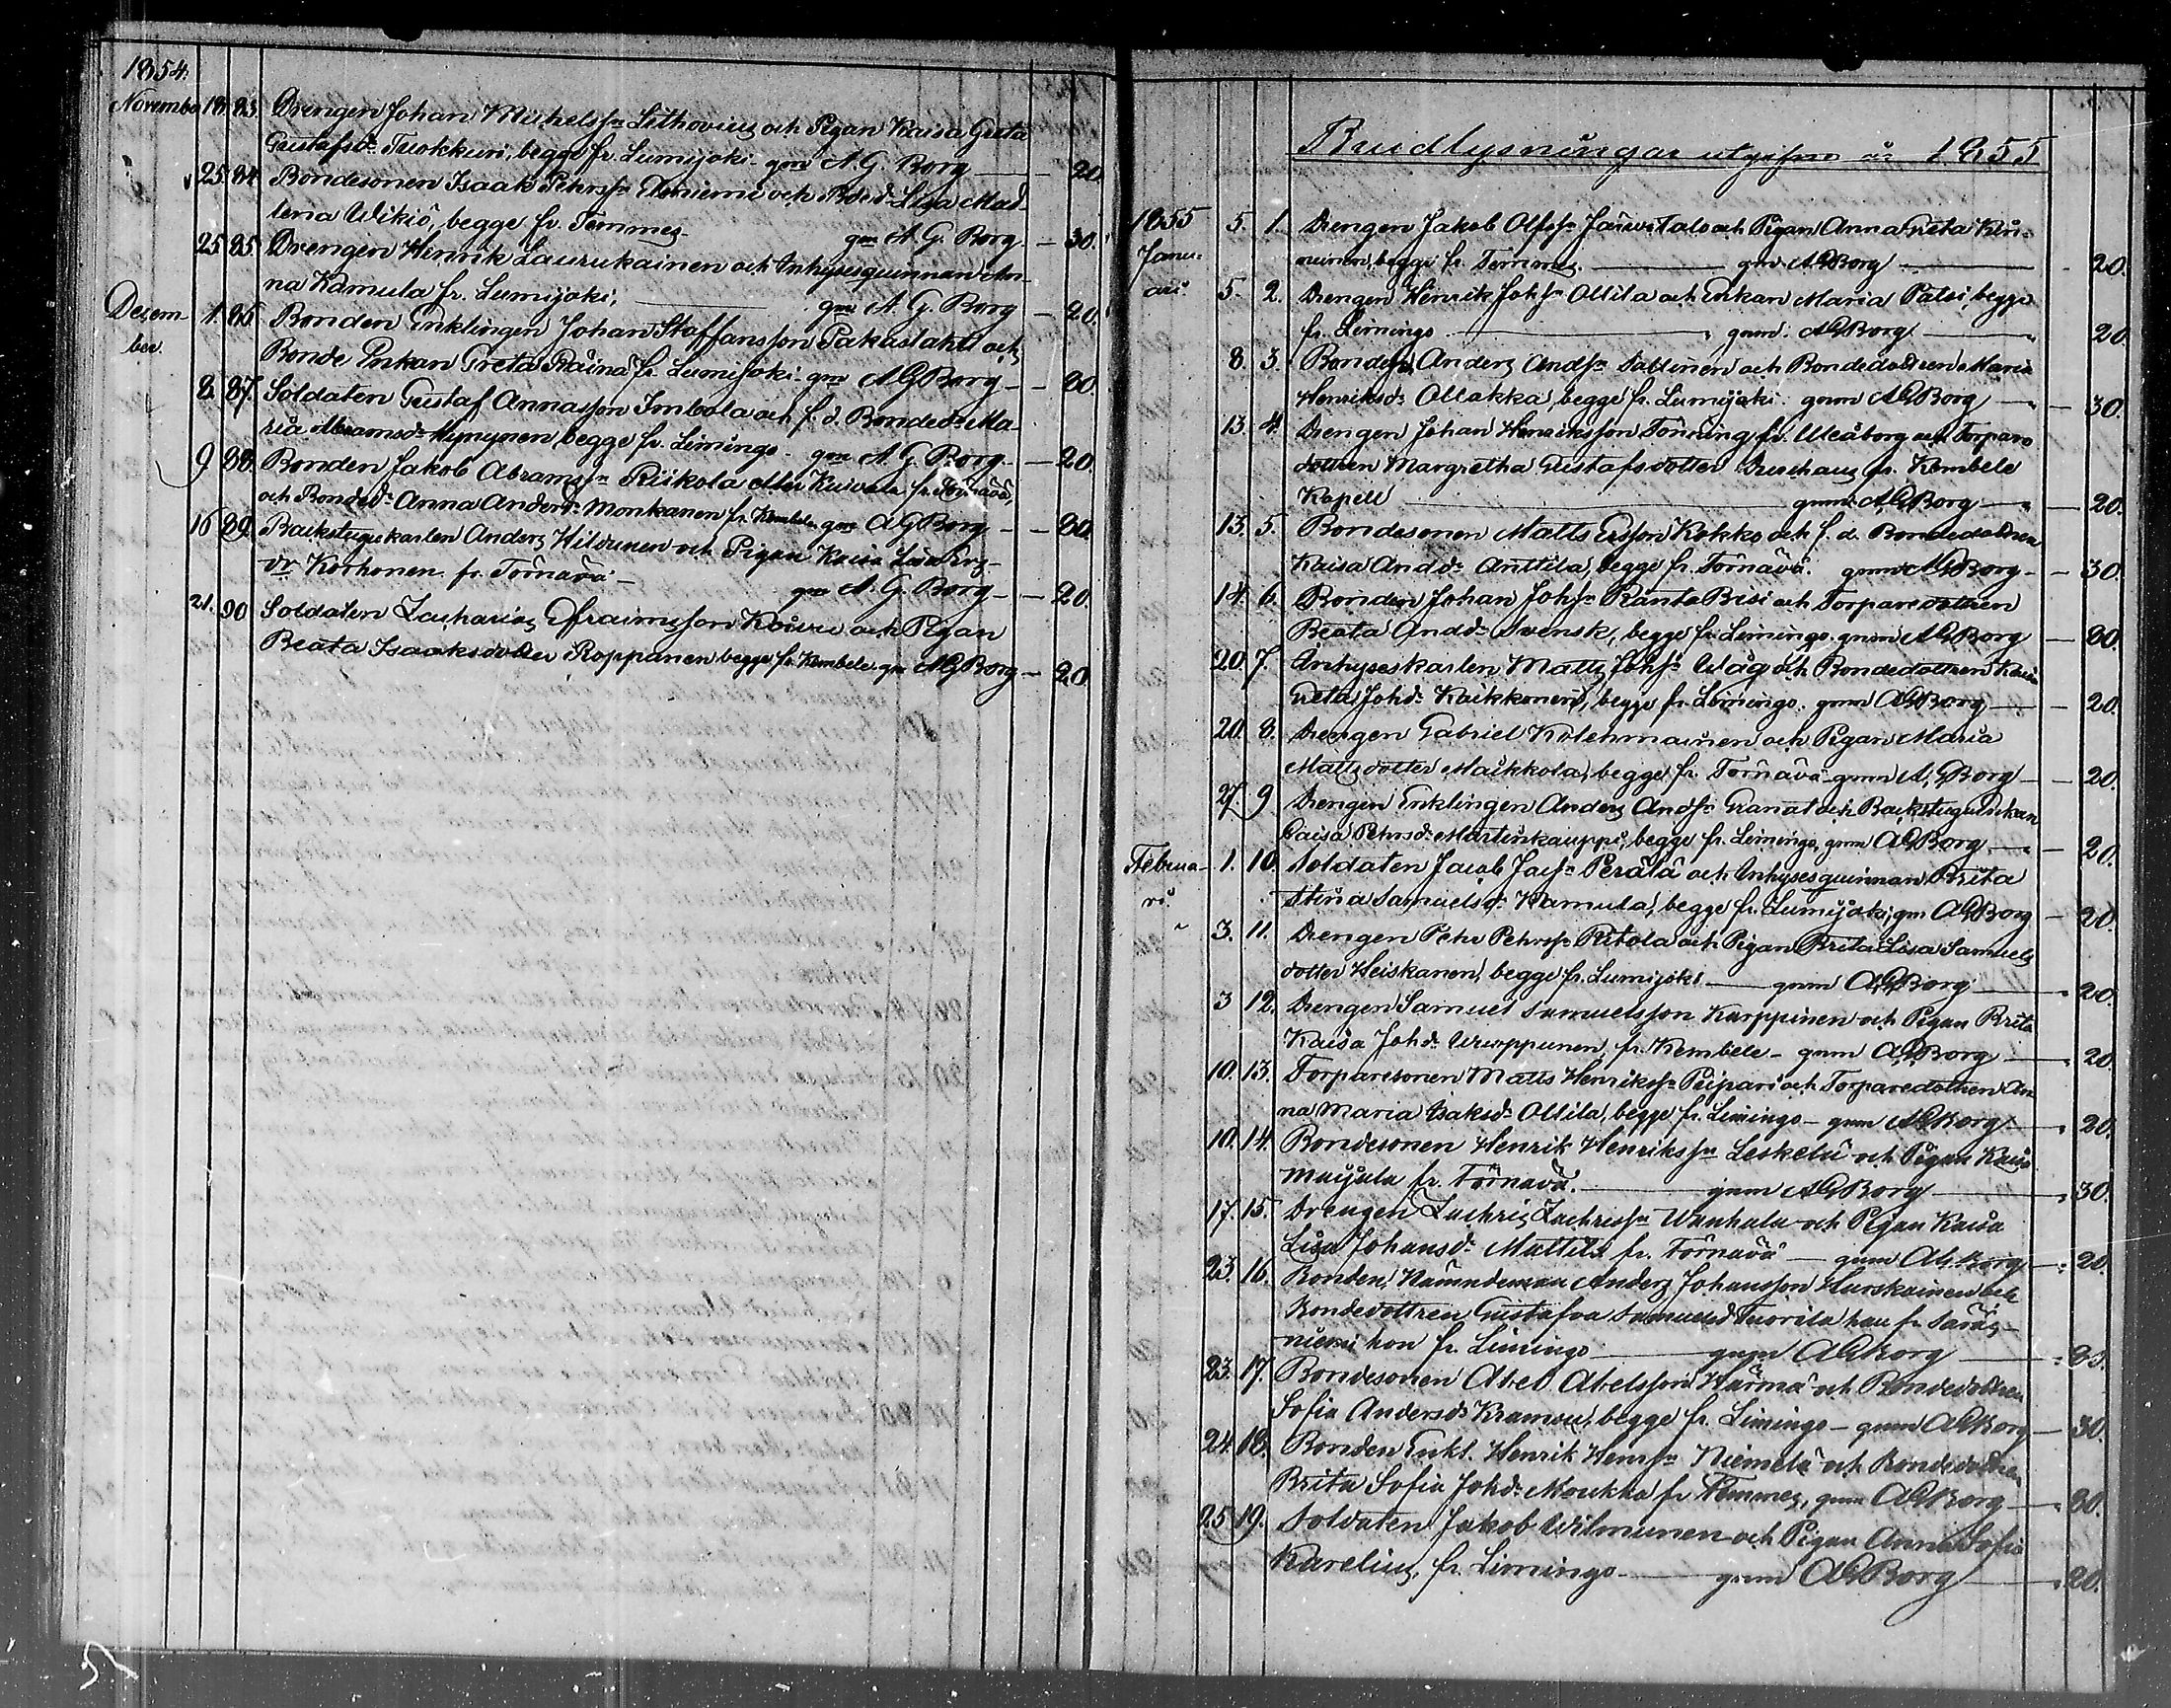 1854.
November 18. 83. Drengen Johan Michelss: Lithovius och Pigan Kaisa Greta
Gustafsdr Tuokkuri, begge fr. Lumijoki. gm A. G. Borg — 20.
25. 84. Bondesonen Isaak Pehrss: och Bdr Lisa Mad
lena Wikiö, begge fr. Temmes. gm A. G. Borg. — 30.
25. 85. Drengen Henrik Laurukainen och Inhysesquinnan An
na Kamula fr. Lumijoki, gm A. G. Borg — 20.
Decem 1. 86. Bonden Enklingen Johan Staffansson Pakaslahti och
ber. Bonde Enkan Greta Räinä fr. Lumijoki. gm AGBorg — 30.
8. 87. Soldaten Gustaf Annasson Imbola och f. d. Bondedr Ma
ria Abramsdr Hyvynen, begge fr. Limingo. gm A. G. Borg. — 20.
9 88. Bonden Jakob Abramss: Piikola eller fr. Törnävä,
och Bondedr Anna Andersdr Monkanen fr. Kembele gm AGBorg — 30.
16 89. Backstugukarlen Anders Hildunen och Pigan Kaisa Lisa
dr Korhonen fr. Törnävä — gm A. G. Borg — 20.
21. 90 Soldaten Zacharias Efraimsson och Pigan
Beata Isaaksdotter Roppanen begge fr. Kembele. gm AGBorg — 20.
Brudlysningar utgifne år 1855
1855 5. 1. Drengen Jakob Olofss: Järvi Talo och Pigan Anna Greta Kin-
Janu- nuinen, begge fr. Temmes. — gm AGBorg — 20.
ari 5. 2. Drengen Henrik Johss: Ollila och Enkan Maria Palsi, begge
fr. Limingo — gnm. AGBorg — 20.
8. 3. Bonden Anders Andss: Sallinen och Bondedottren Maria
Henriksdr Ollakka, begge fr. Lumijoki. gnm AGBorg — 30.
13. 4. Drengen Johan Henriksson Tönning fr. Uleåborg och Torpare
dottren Margretha Gustafsdotter fr. Kembele
Kapell — gnm AGBorg — 20.
13. 5. Bondesonen Matts Ersson Kokko och f. d. Bondedottren
Kaisa Anddr Anttila, begge fr. Törnävä. gnm AGBorg — 30.
14. 6. Bonden Johan Johss: Ranta Pesi och Torparedottren
Beata Anddr Svensk, begge fr. Limingo. gnm AGBorg — 30.
20. 7. Inhyseskarlen Matts Johss: Wäg och Bondedottren Kaisa
Greta Johdr Kaikkonen, begge fr. Limingo. gnm AGBorg — 20.
20. 8. Drengen Gabriel Kolehmainen och Pigan Maria
Mattsdotter Maikkola, begge fr. Törnävä gnm A. G Borg — 20.
27. 9 Drengen Enklingen Anders Andss: Granat och Backstuguenkan
Caisa Pehrsdr Martinkauppi, begge fr. Limingo, gnm AGBorg — 20.
Februa- 1. 10. Soldaten Jacob Jacss: Perälä och Inhysesquinnan Brita
ri Stina Samuelsdr Kamula, begge fr. Lumijoki, gm AGBorg — 20.
" 3. 11. Drengen Petter Pehrss: Pitola och Pigan Brita Lisa Samuels
dotter Heiskanen, begge fr. Lumijoki — gnm AGBorg — 20.
3 12. Drengen Samuel Samuelsson Karppinen och Pigan Brita
Kaisa Johdr fr. Kembele — gnm AGBorg — 20.
10. 13. Torparesonen Matts Henrikss: Piipari och Torparedottren An
na Maria Isaksdr Ollila, begge fr. Limingo — gnm AGBorg — 20.
10. 14. Bondesonen Henrik Henrikss: Leskelä och Pigan Kaisa
Maijala fr. Törnävä. — gnm AGBorg — 30.
17. 15. Drengen Zachris Zachriss: Wanhala och Pigan Kaisa
Lisa Johansdr Mattila fr. Törnävä — gnm AGBorg — 20.
23. 16. Bonden, Nämndeman Anders Johansson Hurskainen och
Bondedottren Gustafva Samuelsd Tuorila han fr. Säräis-
niemi hon fr. Limingo — gnm AGBorg — 30.
23. 17. Bondesonen Abel Abelsson Härmä och Bondedottren
Sofia Andersdr Kramsu, begge fr. Limingo — gnm AGBorg — 30.
24. 18. Bonden Enkl. Henrik Henrss: Niemelä och Bondedottren
Brita Sofia Johdr Moukka fr Temmes, gnm AGBorg — 30.
25 19. Soldaten Jakob Wilmunen och Pigan Anna Sofia
Karelius, fr. Limingo — gnm AGBorg — 20.